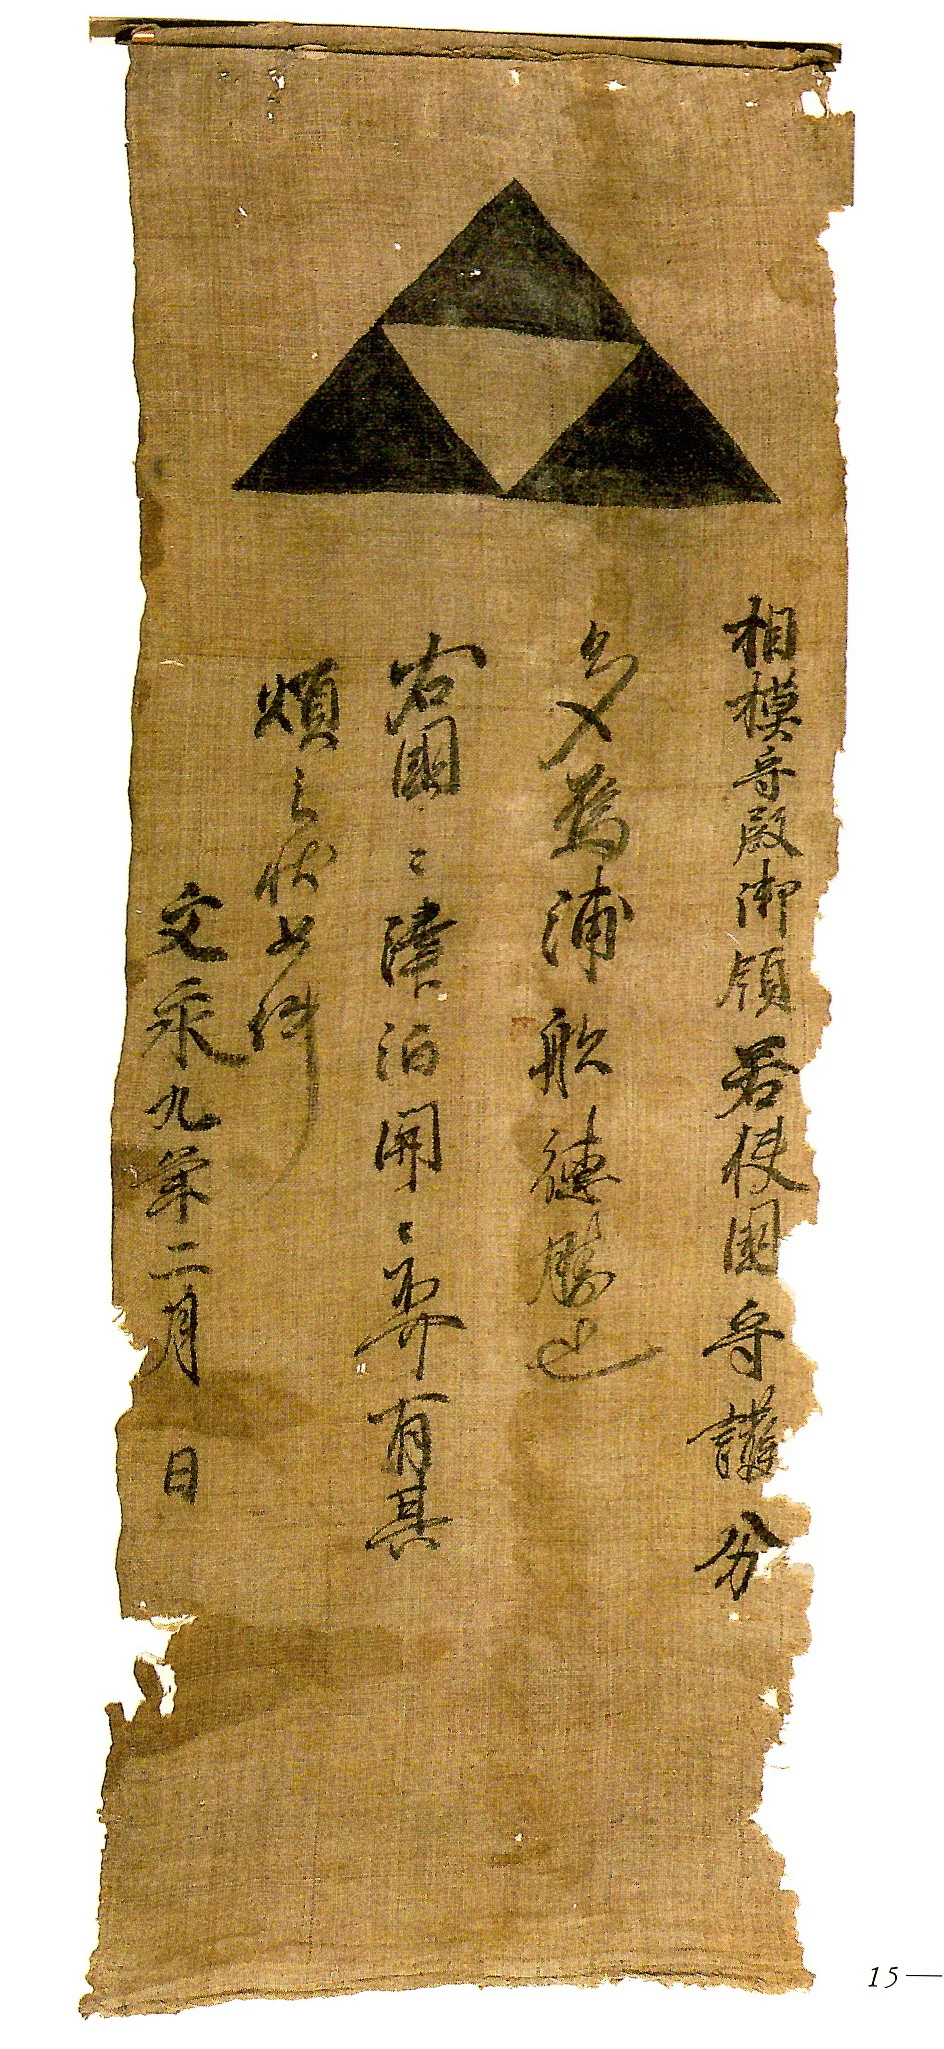 相模守殿御領若狭国守護分
多烏浦船徳勝也
右国々津泊関々不可有其
煩之状如件
文永九年二月 日
15